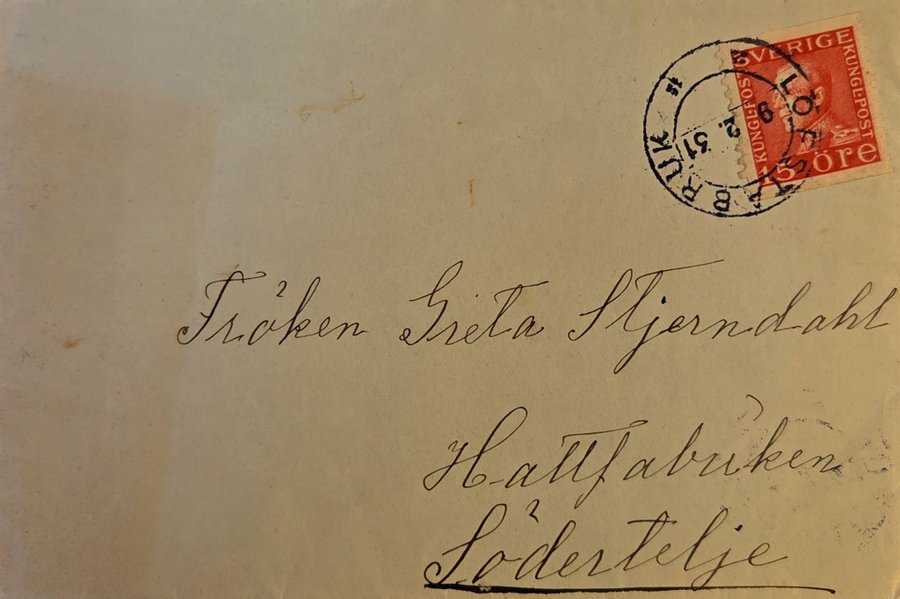 SVERIGE
KUNGL·POST
KUNGL·POST
15 öre
LÖFSTABRUK
9 2. 31
Fröken Greta Stjerndahl
Hattfabriken
Södertelje